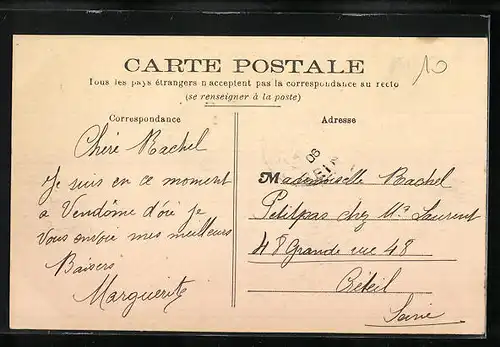 CARTE POSTALE
Tous les pays étrangers n'acceptent pas la correspondance au recto
(se renseigner à la poste)
10
Correspondance
Chère Rachel
Je suis en ce moment
a Vendôme d'où je
vous envoie mes meilleurs
Baisers
Marguerite
Adresse
06
Mademoiselle Rachel
Petitpas chez Mr Laurent
48 Grande rue 48
Créteil
Seine